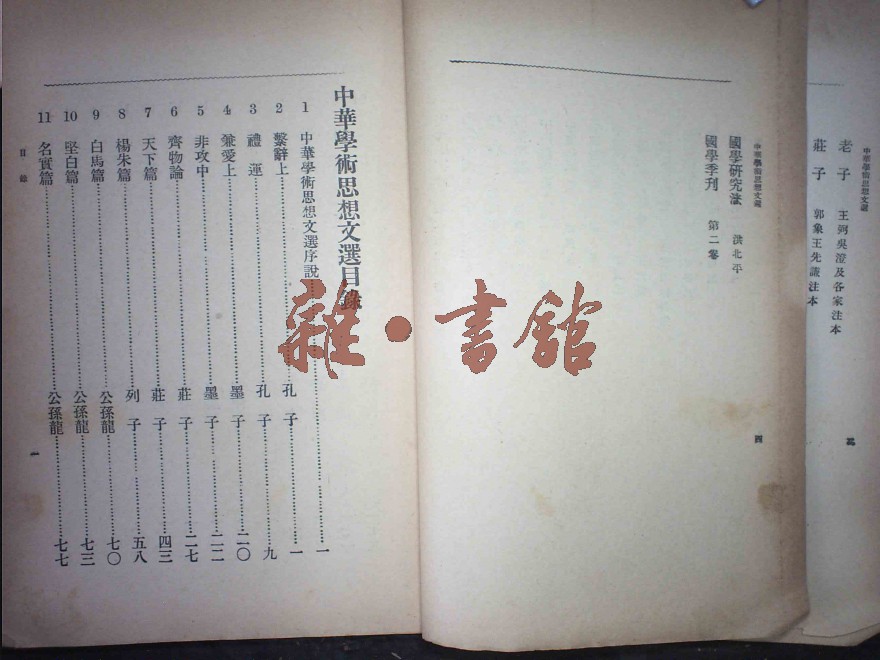 中華學術思想文選
老子　王弼吳澄及各家注本
莊子　郭象王先謙注本
三
中華學術思想文選
國學研究法　洪北平
國學季刊　第二卷
四
中華學術思想文選目錄
1 中華學術思想文選序說……一
2 繫辭上……孔子……一
3 禮運……孔子……九
4 兼愛上……墨子……二〇
5 非攻中……墨子……二二
6 齊物論……莊子……二七
7 天下篇……莊子……四三
8 楊朱篇……列子……五八
9 白馬篇……公孫龍……七〇
10 堅白篇……公孫龍……七三
11 名實篇……公孫龍……七七
目錄
一
雜·書館